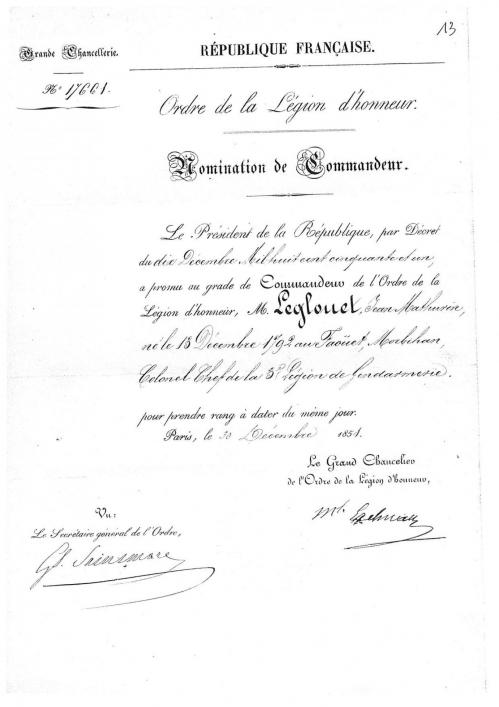 13
Grande Chancellerie.
RÉPUBLIQUE FRANÇAISE.
N° 17661.
Ordre de la Légion d'honneur.
Nomination de Commandeur.
Le Président de la République, par Décret
du dix Décembre Mil huit cent cinquante et un,
a promu au grade de Commandeur de l'Ordre de la
Légion d'honneur, M. Leglouet, Jean Mathurin,
né le 13 Décembre 1792 au Faöuet, Morbihan,
Colonel Chef de la 5e Légion de Gendarmerie.
pour prendre rang à dater du même jour.
Paris, le 30 Décembre 1851.
Le Grand Chancelier
de l'Ordre de la Légion d'Honneur,
Vu:
Le Secrétaire général de l'Ordre,
Mal
Gl